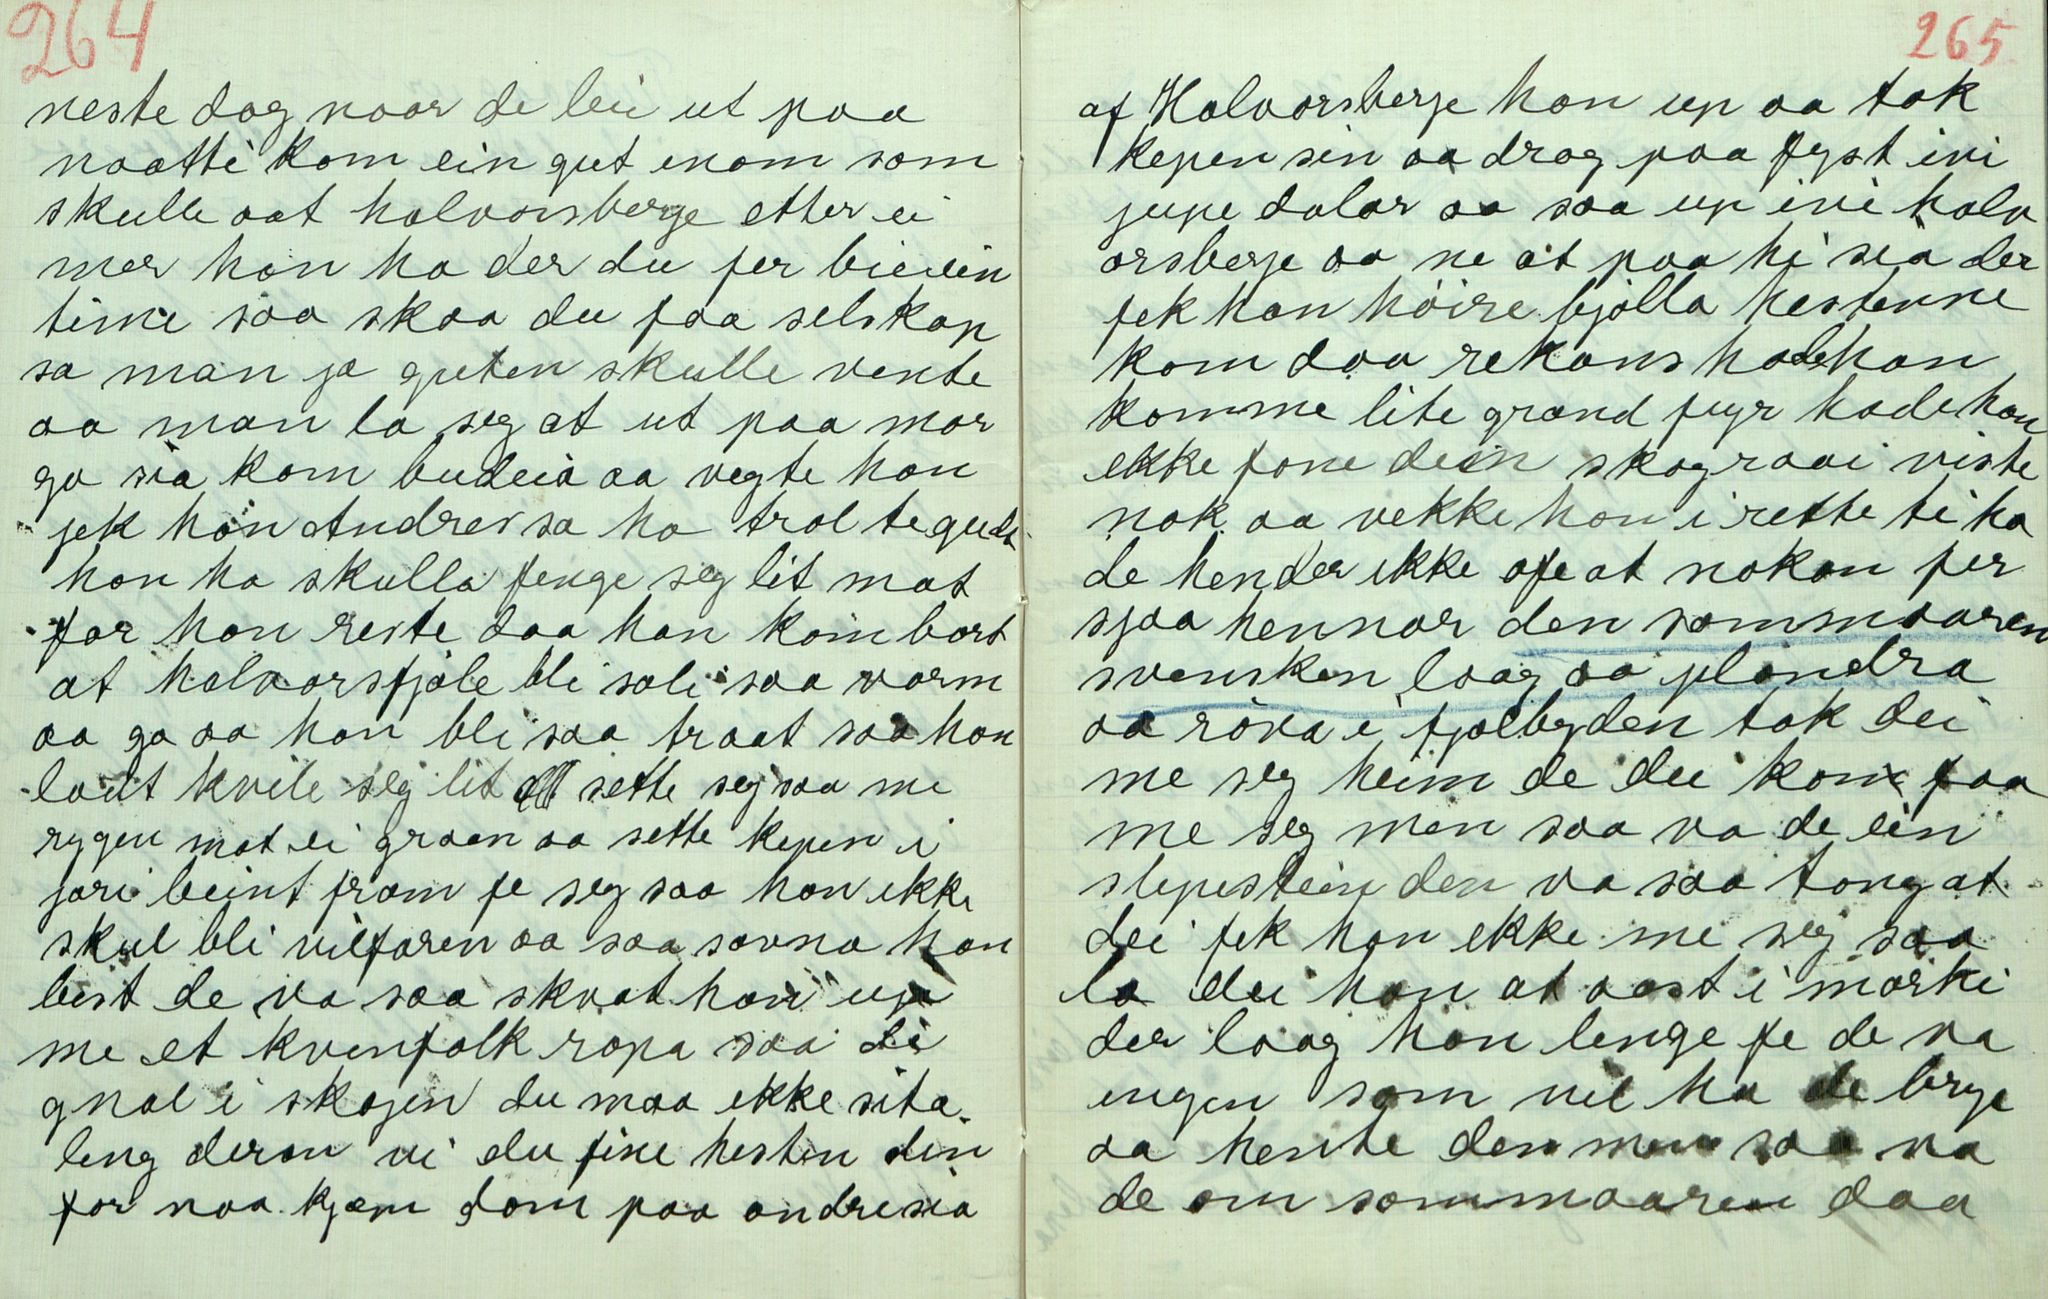 264
neste dag naar de lei ut paa
naatti kom ein gut inom som
skulle aat halvorsberge etter ei
mer han ha der du fer bie ein
time saa skaa du faa selskap
sa man ja guten skulle vente
aa man la seg at ut paa mor
go sia kom budeia aa vegte han
jek han Andres sa ha trol te gudt
han ha skulla fenge seg lit mat
før han reste daa han kom bort
at halvorsfjøle bli soli saa varm
aa ga aa han bli saa traat saa han
lodt kvile seg lit sette seg saa me
rygen mot ei graen aa sette kepen i
jori beint fram fe seg saa han ikke
skul bli vilfaren aa saa sovna han
best de va saa skvat han up
me et kvenfolk ropa saa de
gnal i skogen du maa ikke sita
leng deran vi du fine hesten din
for naa kjæm dom paa andre sia
265
af Halvorsberge han up aa tok
kepen sin aa drog paa fyst ivi
jupe dalar aa saa up ivi halv
orsberje aa ne at paa hi sia der
fek han høire bjølla hestenne
kom daa rekans hade han
komme lite grand fuyr hade han
ekke fone dein skograai viste
nok aa vekke han i rette ti ha
de hender ikke ofe at nokon fer
sjaa hennar den sommaaren
svensken laag aa plondra
aa røva i fjølbyden tok dei
me seg heim de dei kom faa
me seg men saa va de ein
slepestein den va saa tong at
dei fek han ekke me seg saa
la dei han at aast i mørki
der laag han lenge fe de va
ingen som vil ha de brye
aa hente den men saa va
de om sommaaren daa